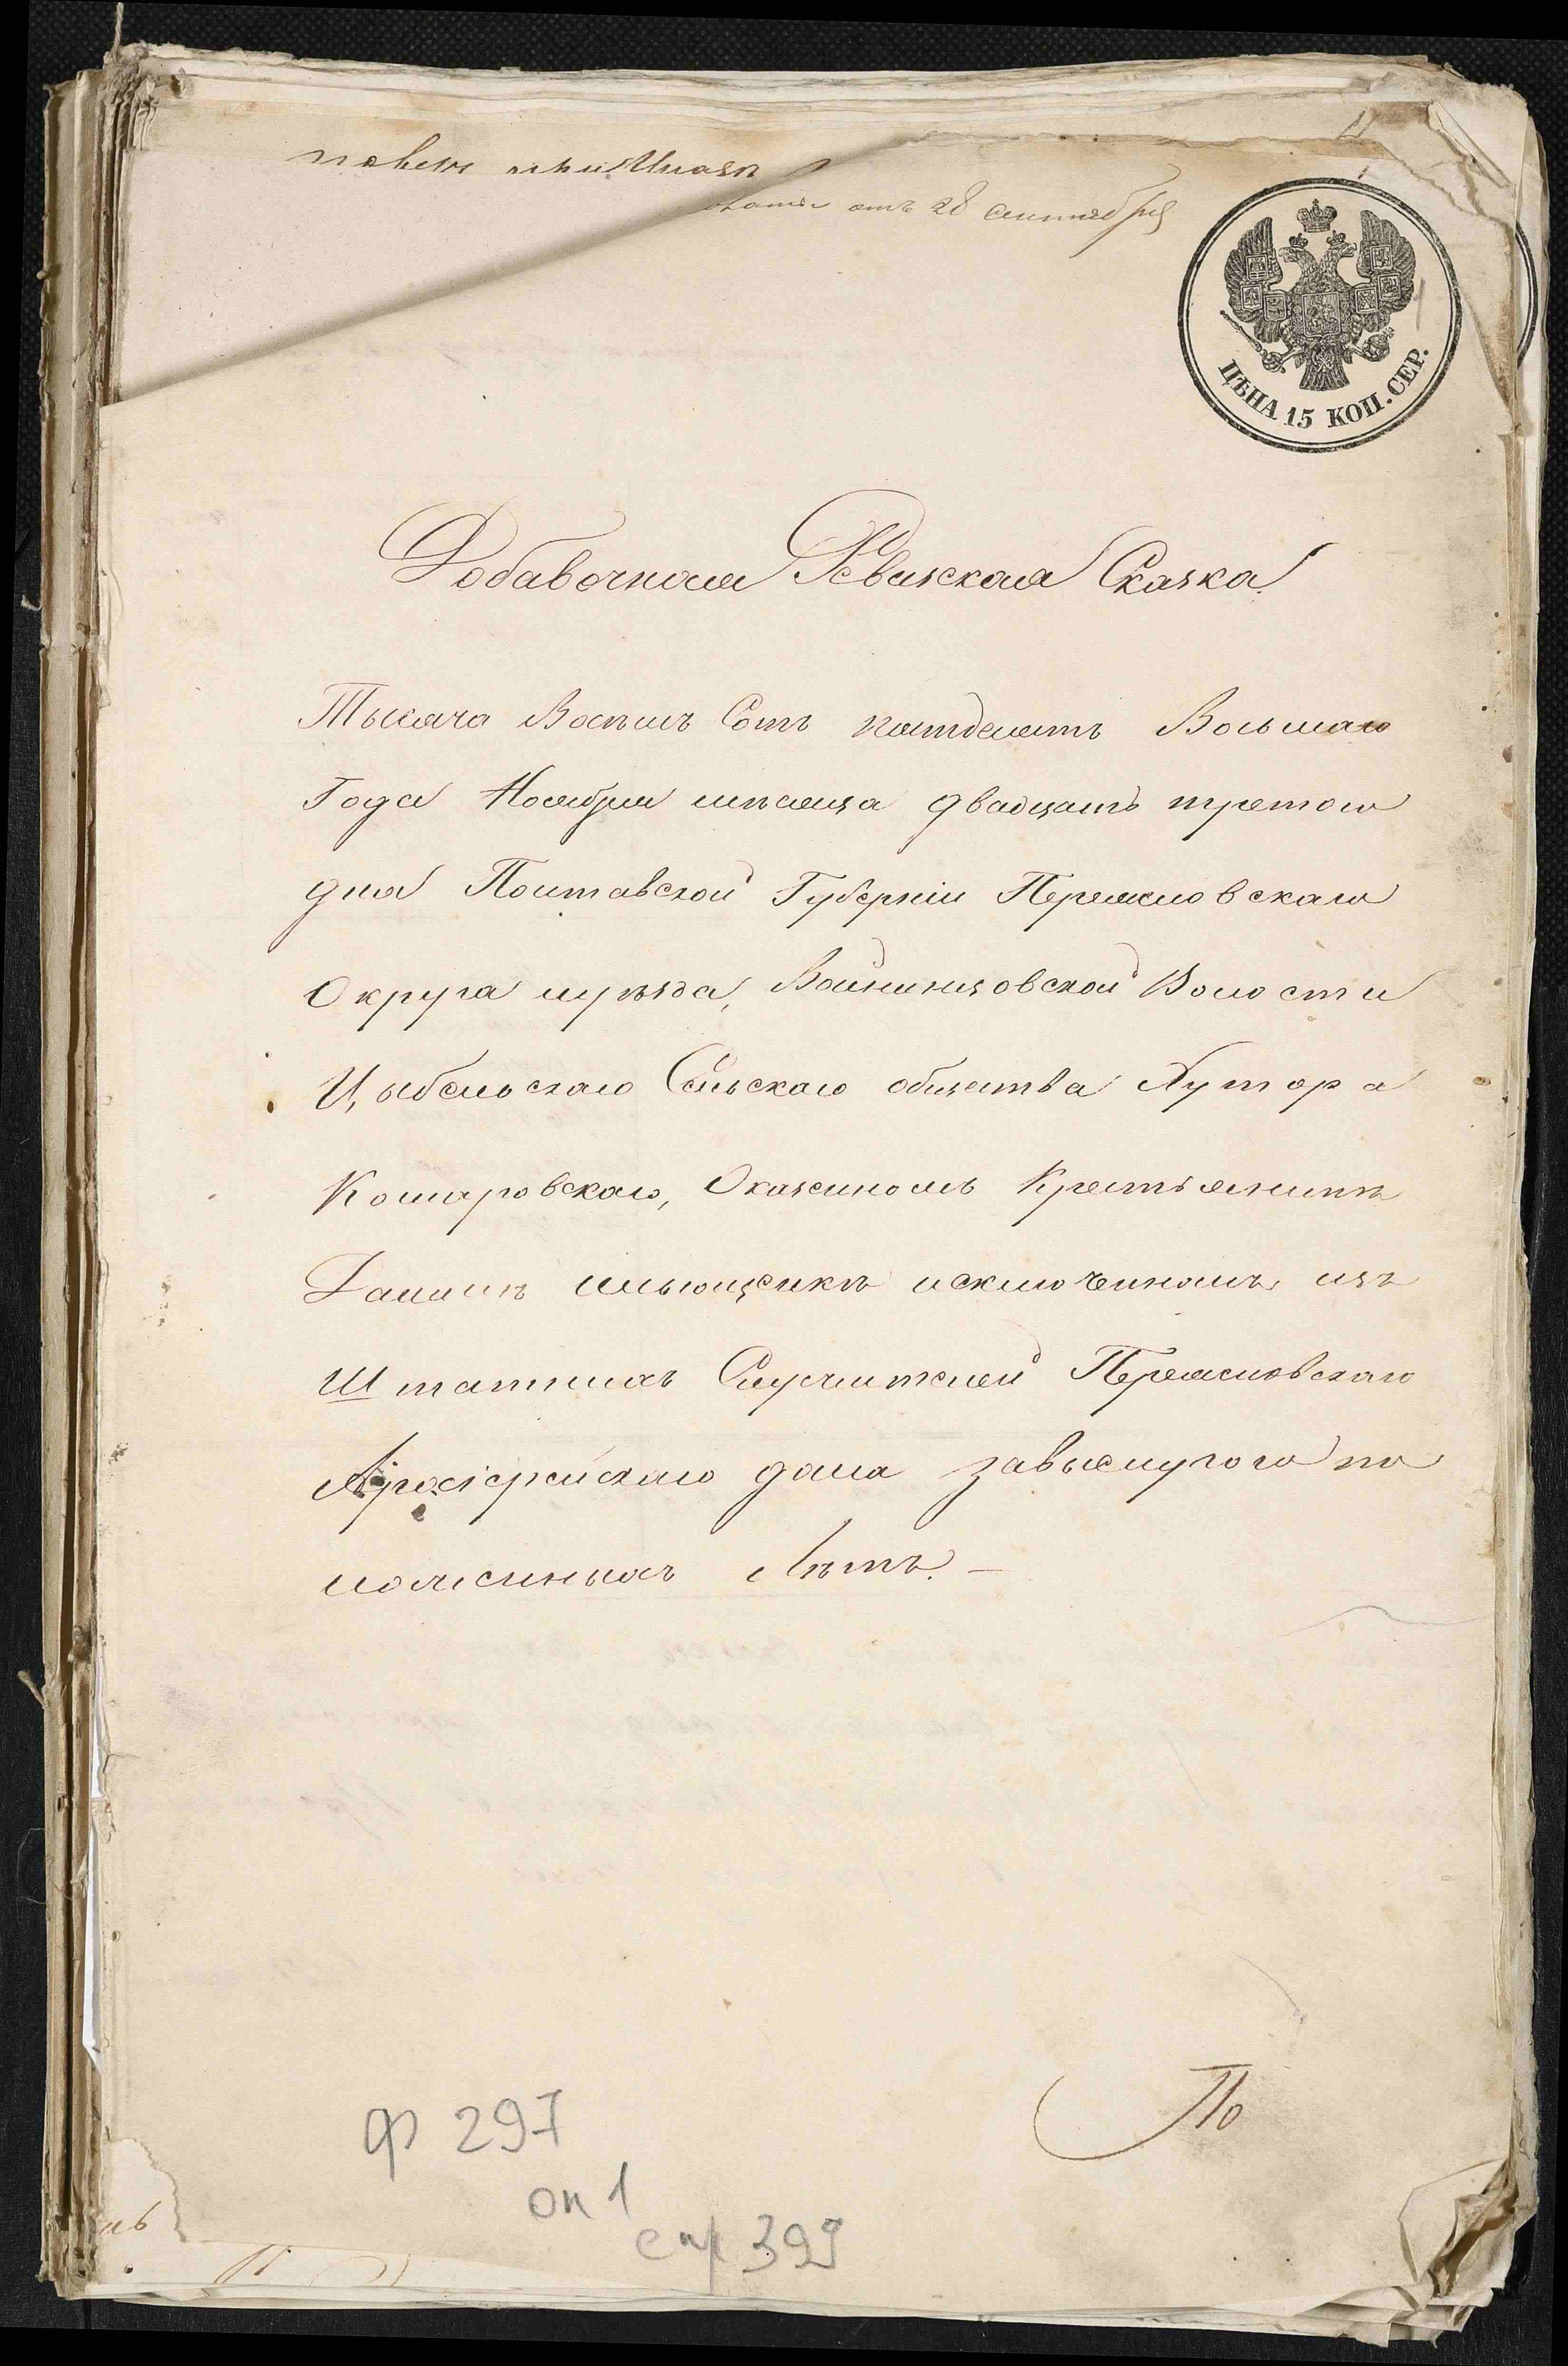 отъ 28 сентября
ЦѢНА 15 КОП. СЕР.
Добавочная Ревизская Сказка
Тысяча Восемь Сотъ пятдесятъ Восьмаго
Года Ноября мѣсяца двадцать третого
дня Полтавской Губерніи Переясловскаго
Округа иуѣзда, Войнинцовской Волости
Цыбельскаго Сельскаго общества Хутора
Комаровскаго, Оказенномъ Крестьянинѣ
исключенномъ изъ
Штатныхъ Служителей Переясловскаго
Архіерейскаго дома завыслугого по
ложенныхъ Лѣтъ. –
По
ф 297
оп 1
спр 399